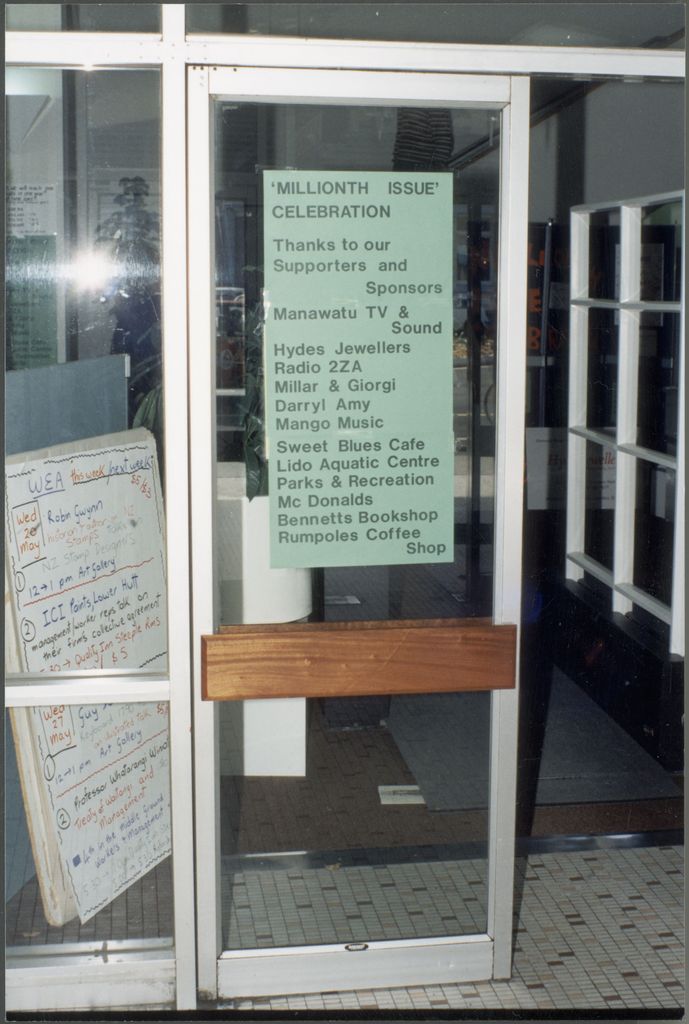 'MILLIONTH ISSUE'
CELEBRATION
Thanks to our
Supporters and
Sponsors
Manawatu TV &
Sound
Hydes Jewellers
Radio 2ZA
Millar & Giorgi
Darryl Amy
Mango Music
Sweet Blues Cafe
Lido Aquatic Centre
Parks & Recreation
Mc Donalds
Bennetts Bookshop
Rumpoles Coffee
Shop
WEA this week/next week
Wed
20
May
Robin Gwynn
historian/author on NZ
Stamps talks
NZ Stamp Designs
①
12→1 pm Art Gallery
② ICI Paints, Lower Hutt
management/worker reps talk on
their firm's collective agreement
Quality Inn Steeple Rms
$5
Wed
27
May
Guy
Keyboard
an illustrated talk
①
12→1 pm Art Gallery
② Professor Whatarangi Winiata
Treaty of Waitangi and
Management
4th in the middle Ground
Workers & Management